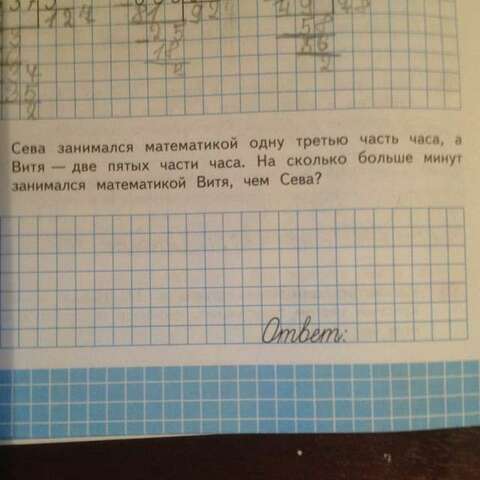 127
924
Сева занимался математикой одну третью часть часа, а
Витя — две пятых части часа. На сколько больше минут
занимался математикой Витя, чем Сева?
Ответ: